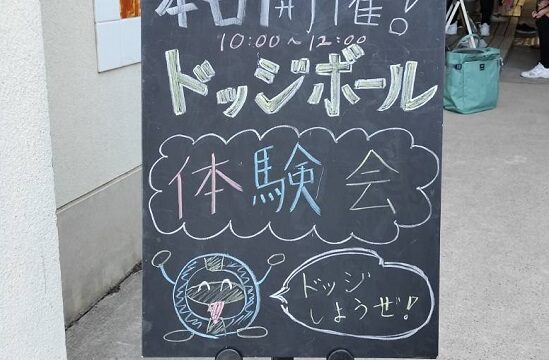 本日開催！
10:00～12:00
ドッジボール
体験会
ドッジ
しようぜ！